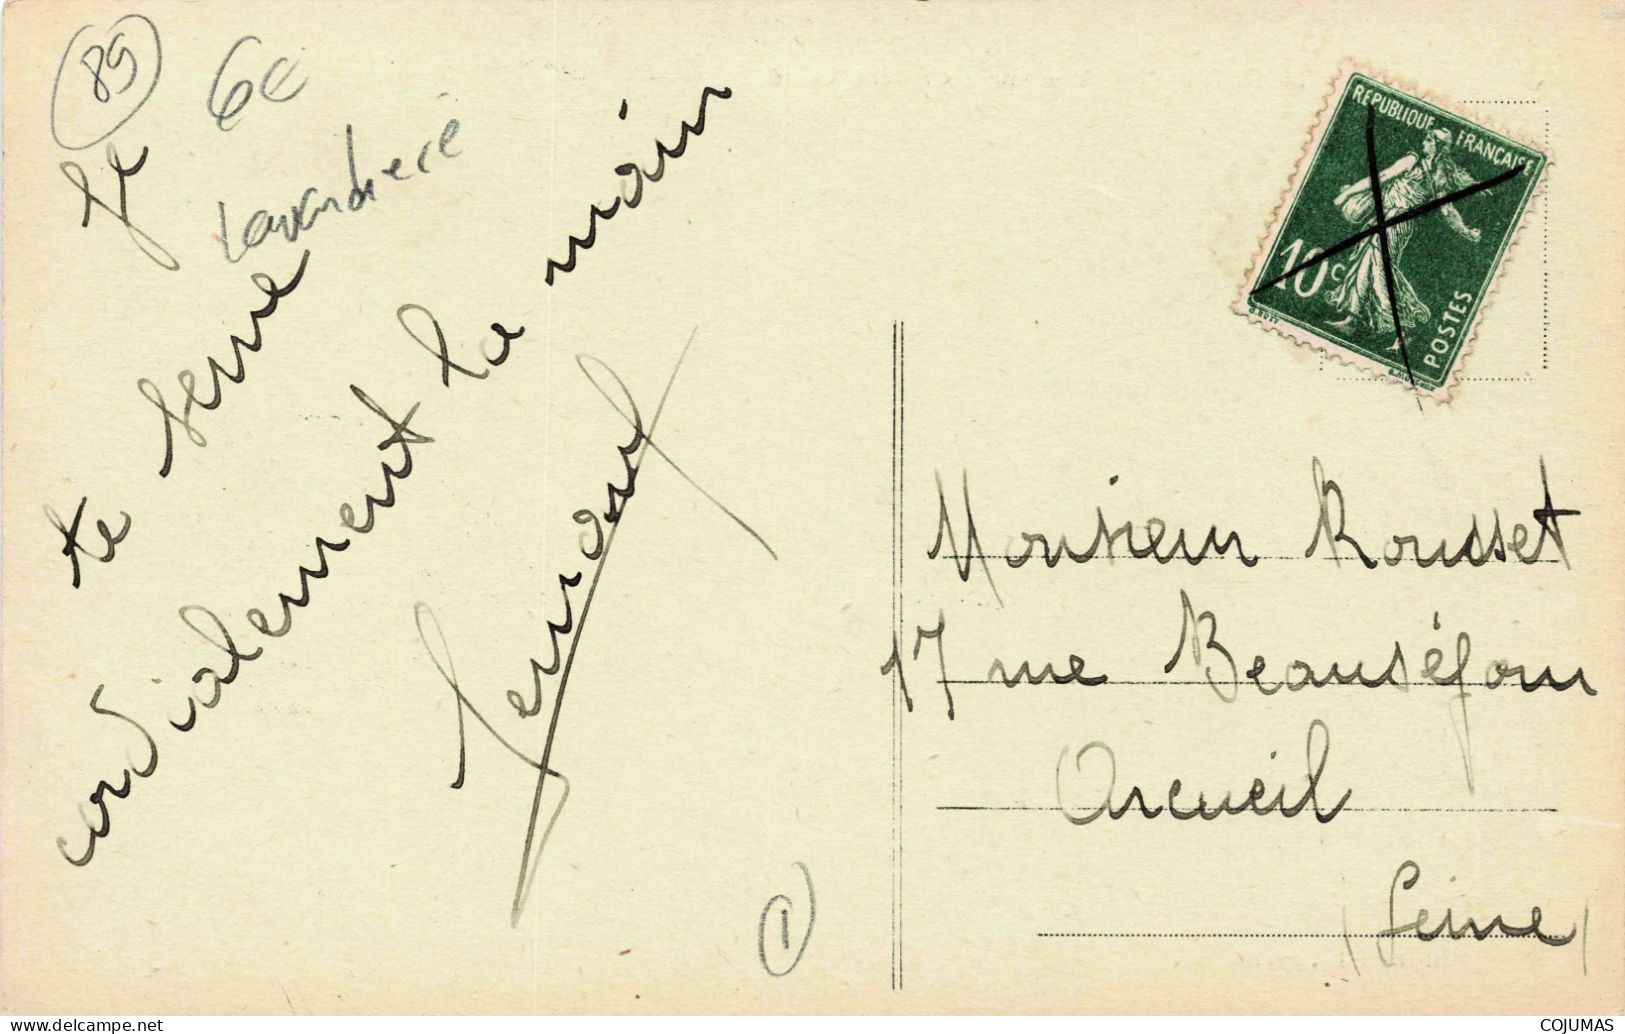 89
6€
lavandiere
Je
te serre
cordialement la main
Fernand
1
RÉPUBLIQUE FRANÇAISE
10c
POSTES
Monsieur Rousset
17 rue Beauséjour
Arcueil
(Seine)
delcampe.net
COJUMAS